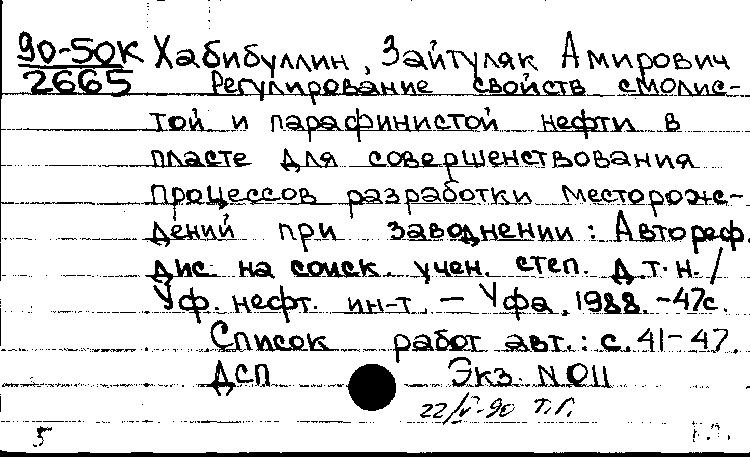 90-50К Хабибуллин, Зайтуляк Амирович
2665 Регулирование свойств смолис-
той и парафинистой нефти в
пласте для совершенствования
процессов разработки месторож-
дений при заводнении: Автореф.
дис. на соиск. учен. степ. д.т.н./
Уф. нефт. ин-т. – Уфа, 1988. -47с.
Список работ авт.: с. 41-47.
ДСП Экз. N 011
22/V-90 Т.Г.
5